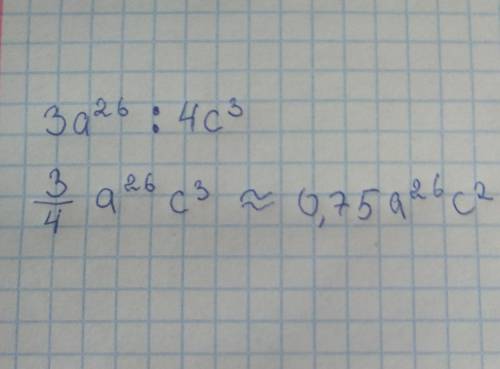 3a²⁶ : 4c³
3/4 a²⁶ c³ ≈ 0,75a²⁶c²